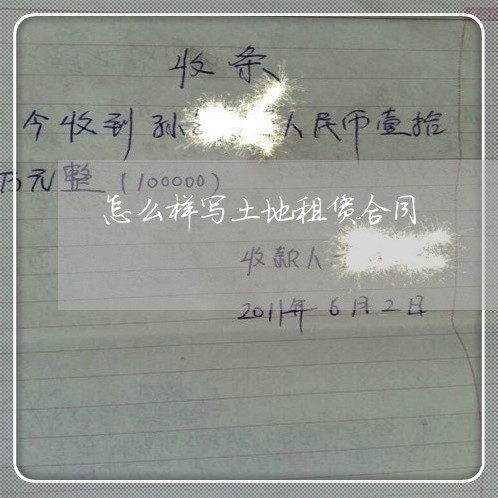 收条
今收到孙 人民币壹拾
万元整（100000）
怎么样写土地租赁合同
收款人
2011年6月2日